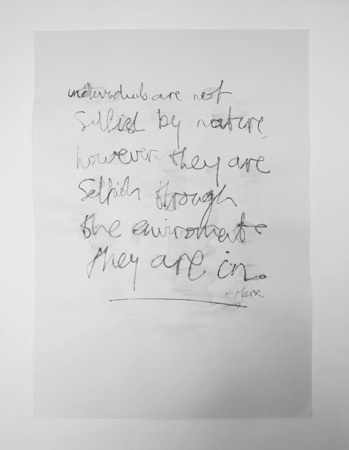 individuals are not
selfish by nature,
however they are
selfish through
the enviroment
they are in.
- Marx